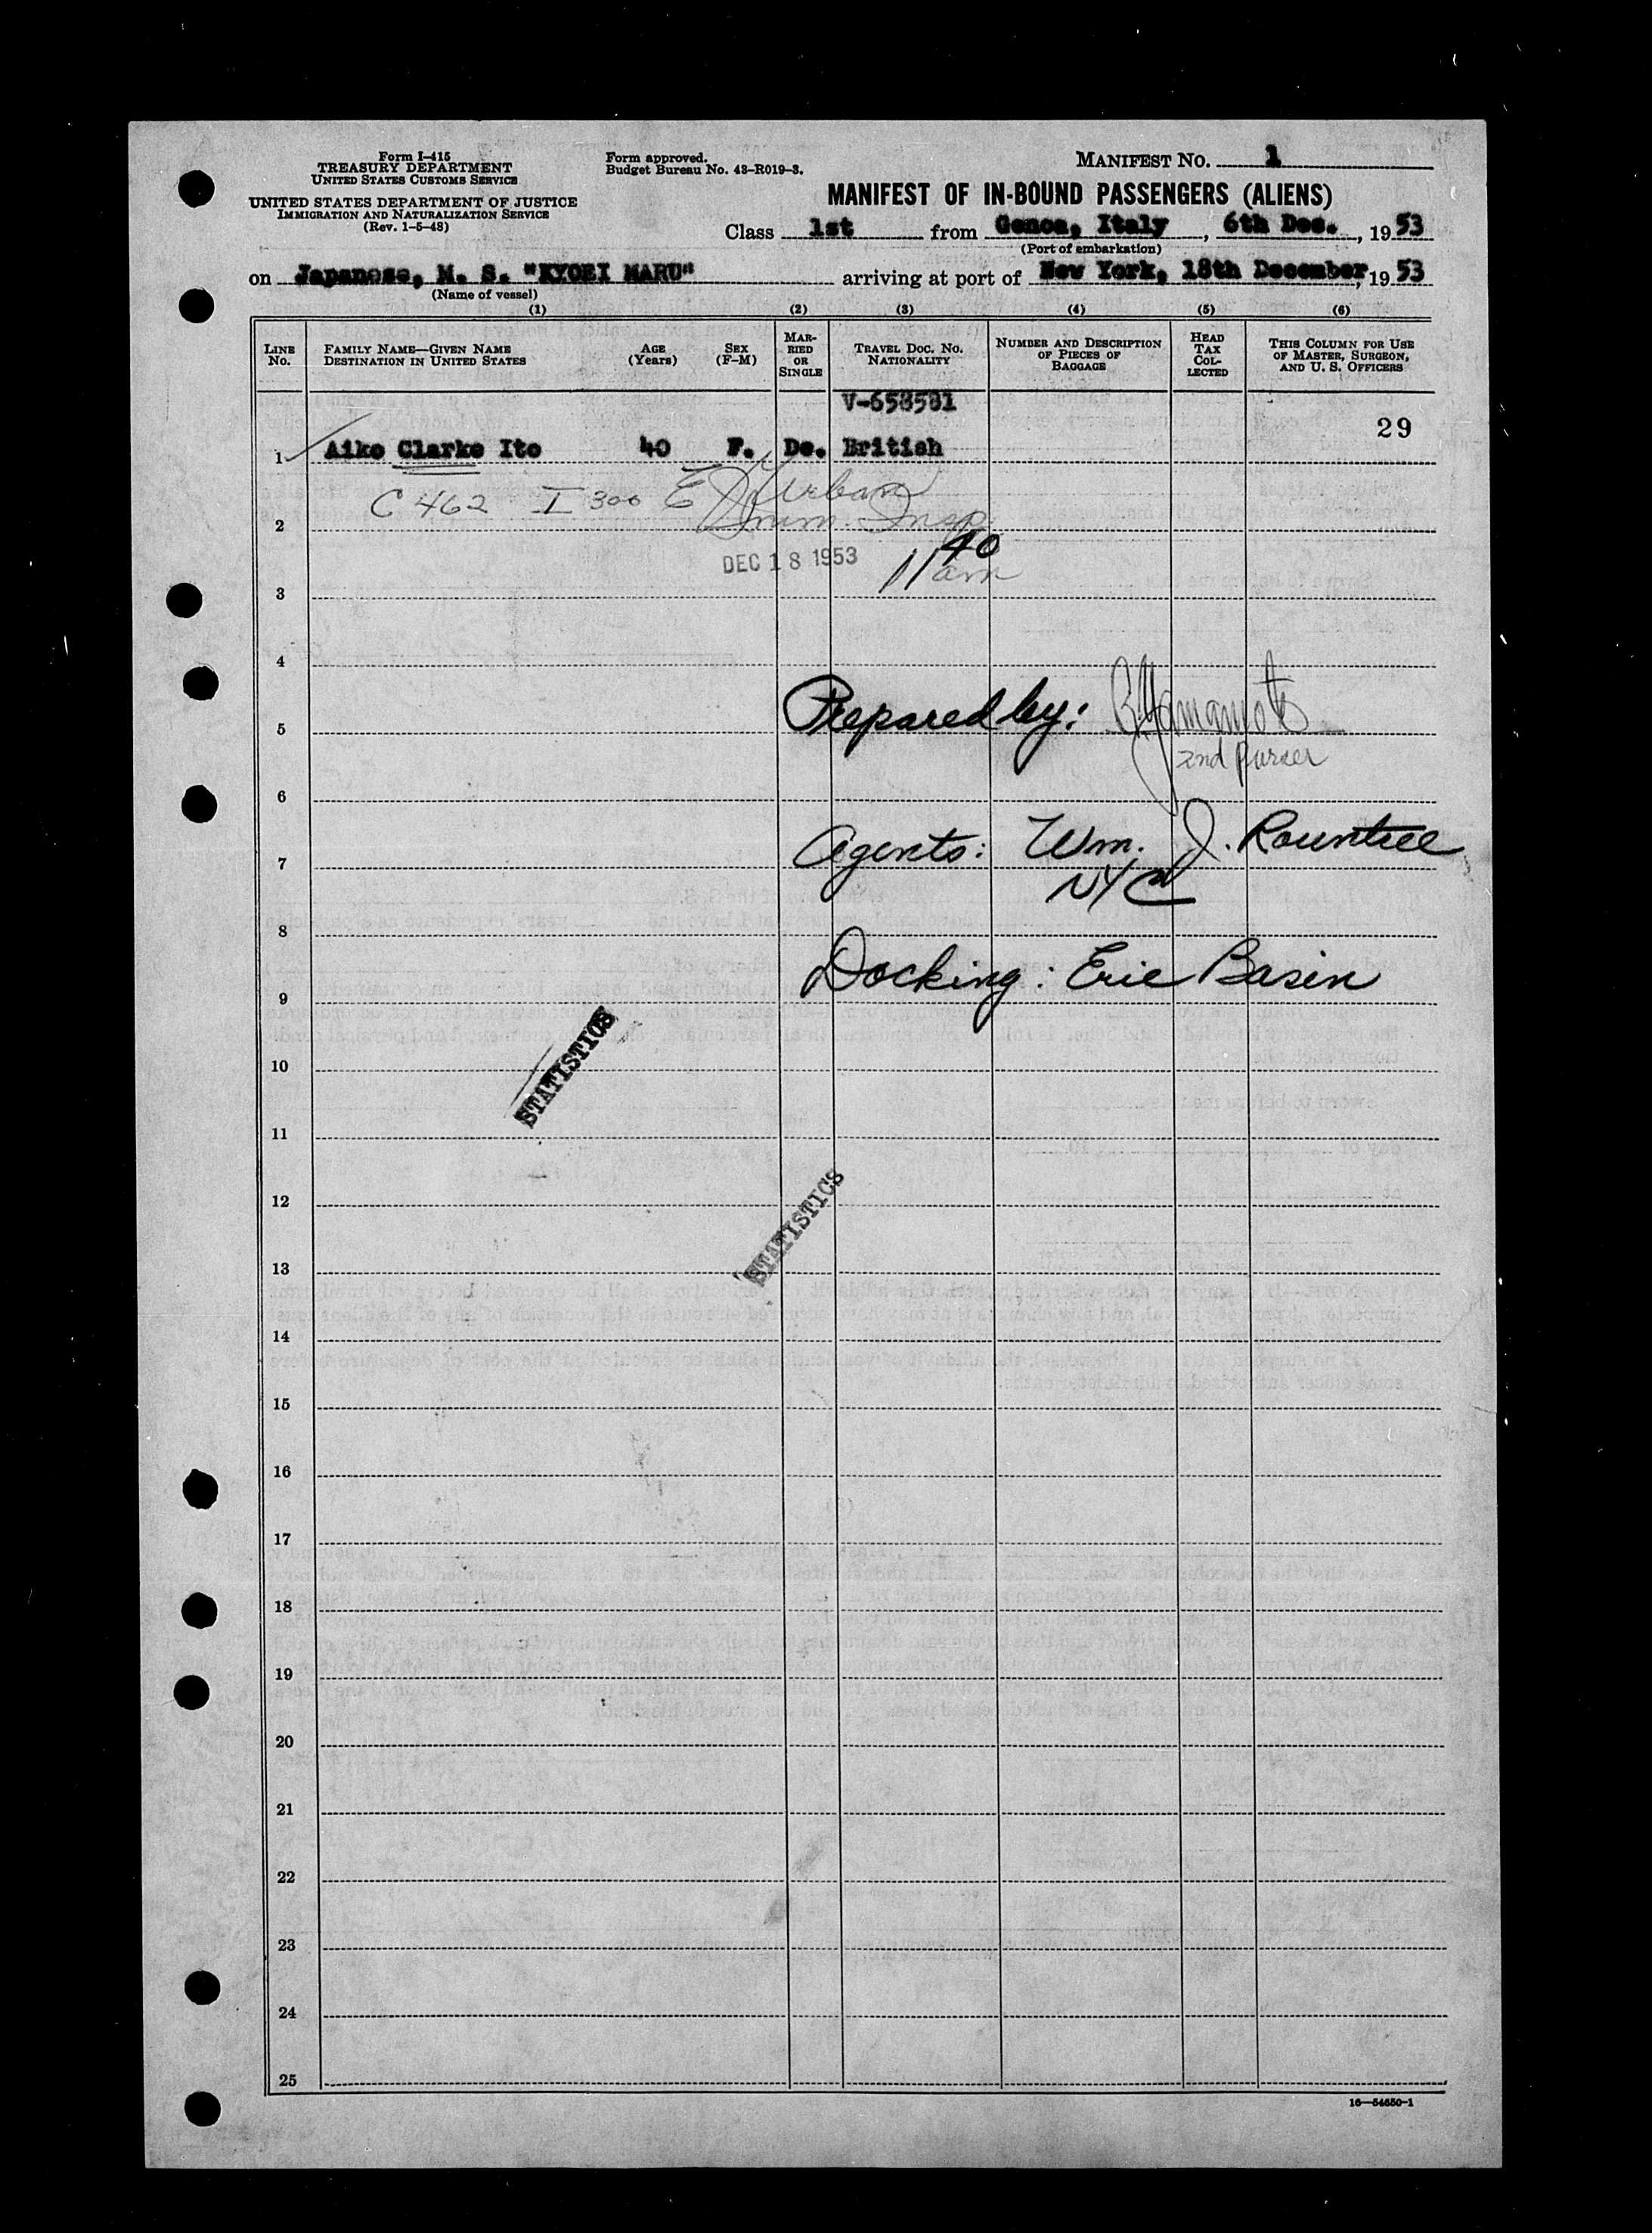 Form I-415
TREASURY DEPARTMENT
UNITED STATES CUSTOMS SERVICE
UNITED STATES DEPARTMENT OF JUSTICE
IMMIGRATION AND NATURALIZATION SERVICE
(Rev. 1-5-48)
Form approved.
Budget Bureau No. 43-R019-3.
MANIFEST NO. 1
MANIFEST OF IN-BOUND PASSENGERS (ALIENS)
Class 1st from Genoa, Italy, 6th Dec., 1953
(Port of embarkation)
on Japanese, M. S. "KYOEI MARU" arriving at port of New York, 18th December, 1953
(Name of vessel)
(1) (2) (3) (4) (5) (6)
LINE NO. FAMILY NAME—GIVEN NAME DESTINATION IN UNITED STATES AGE (Years) SEX (F-M) MARRIED OR SINGLE TRAVEL DOC. NO. NATIONALITY NUMBER AND DESCRIPTION OF PIECES OF BAGGAGE HEAD TAX COLLECTED THIS COLUMN FOR USE OF MASTER, SURGEON, AND U. S. OFFICERS
V-658581
29
1 Aiko Clarke Ito 40 F. De. British
C 462 I 300 E J Urban
2 Imm. Insp.
DEC 18 1953 11 40 am
3
4
5 Prepared by: Yamamoto
2nd Purser
6
7 Agents: Wm. J. Rountree
NYC
8
9 Docking: Erie Basin
STATISTICS
10
11
12
STATISTICS
13
14
15
16
17
18
19
20
21
22
23
24
25
16—54650-1